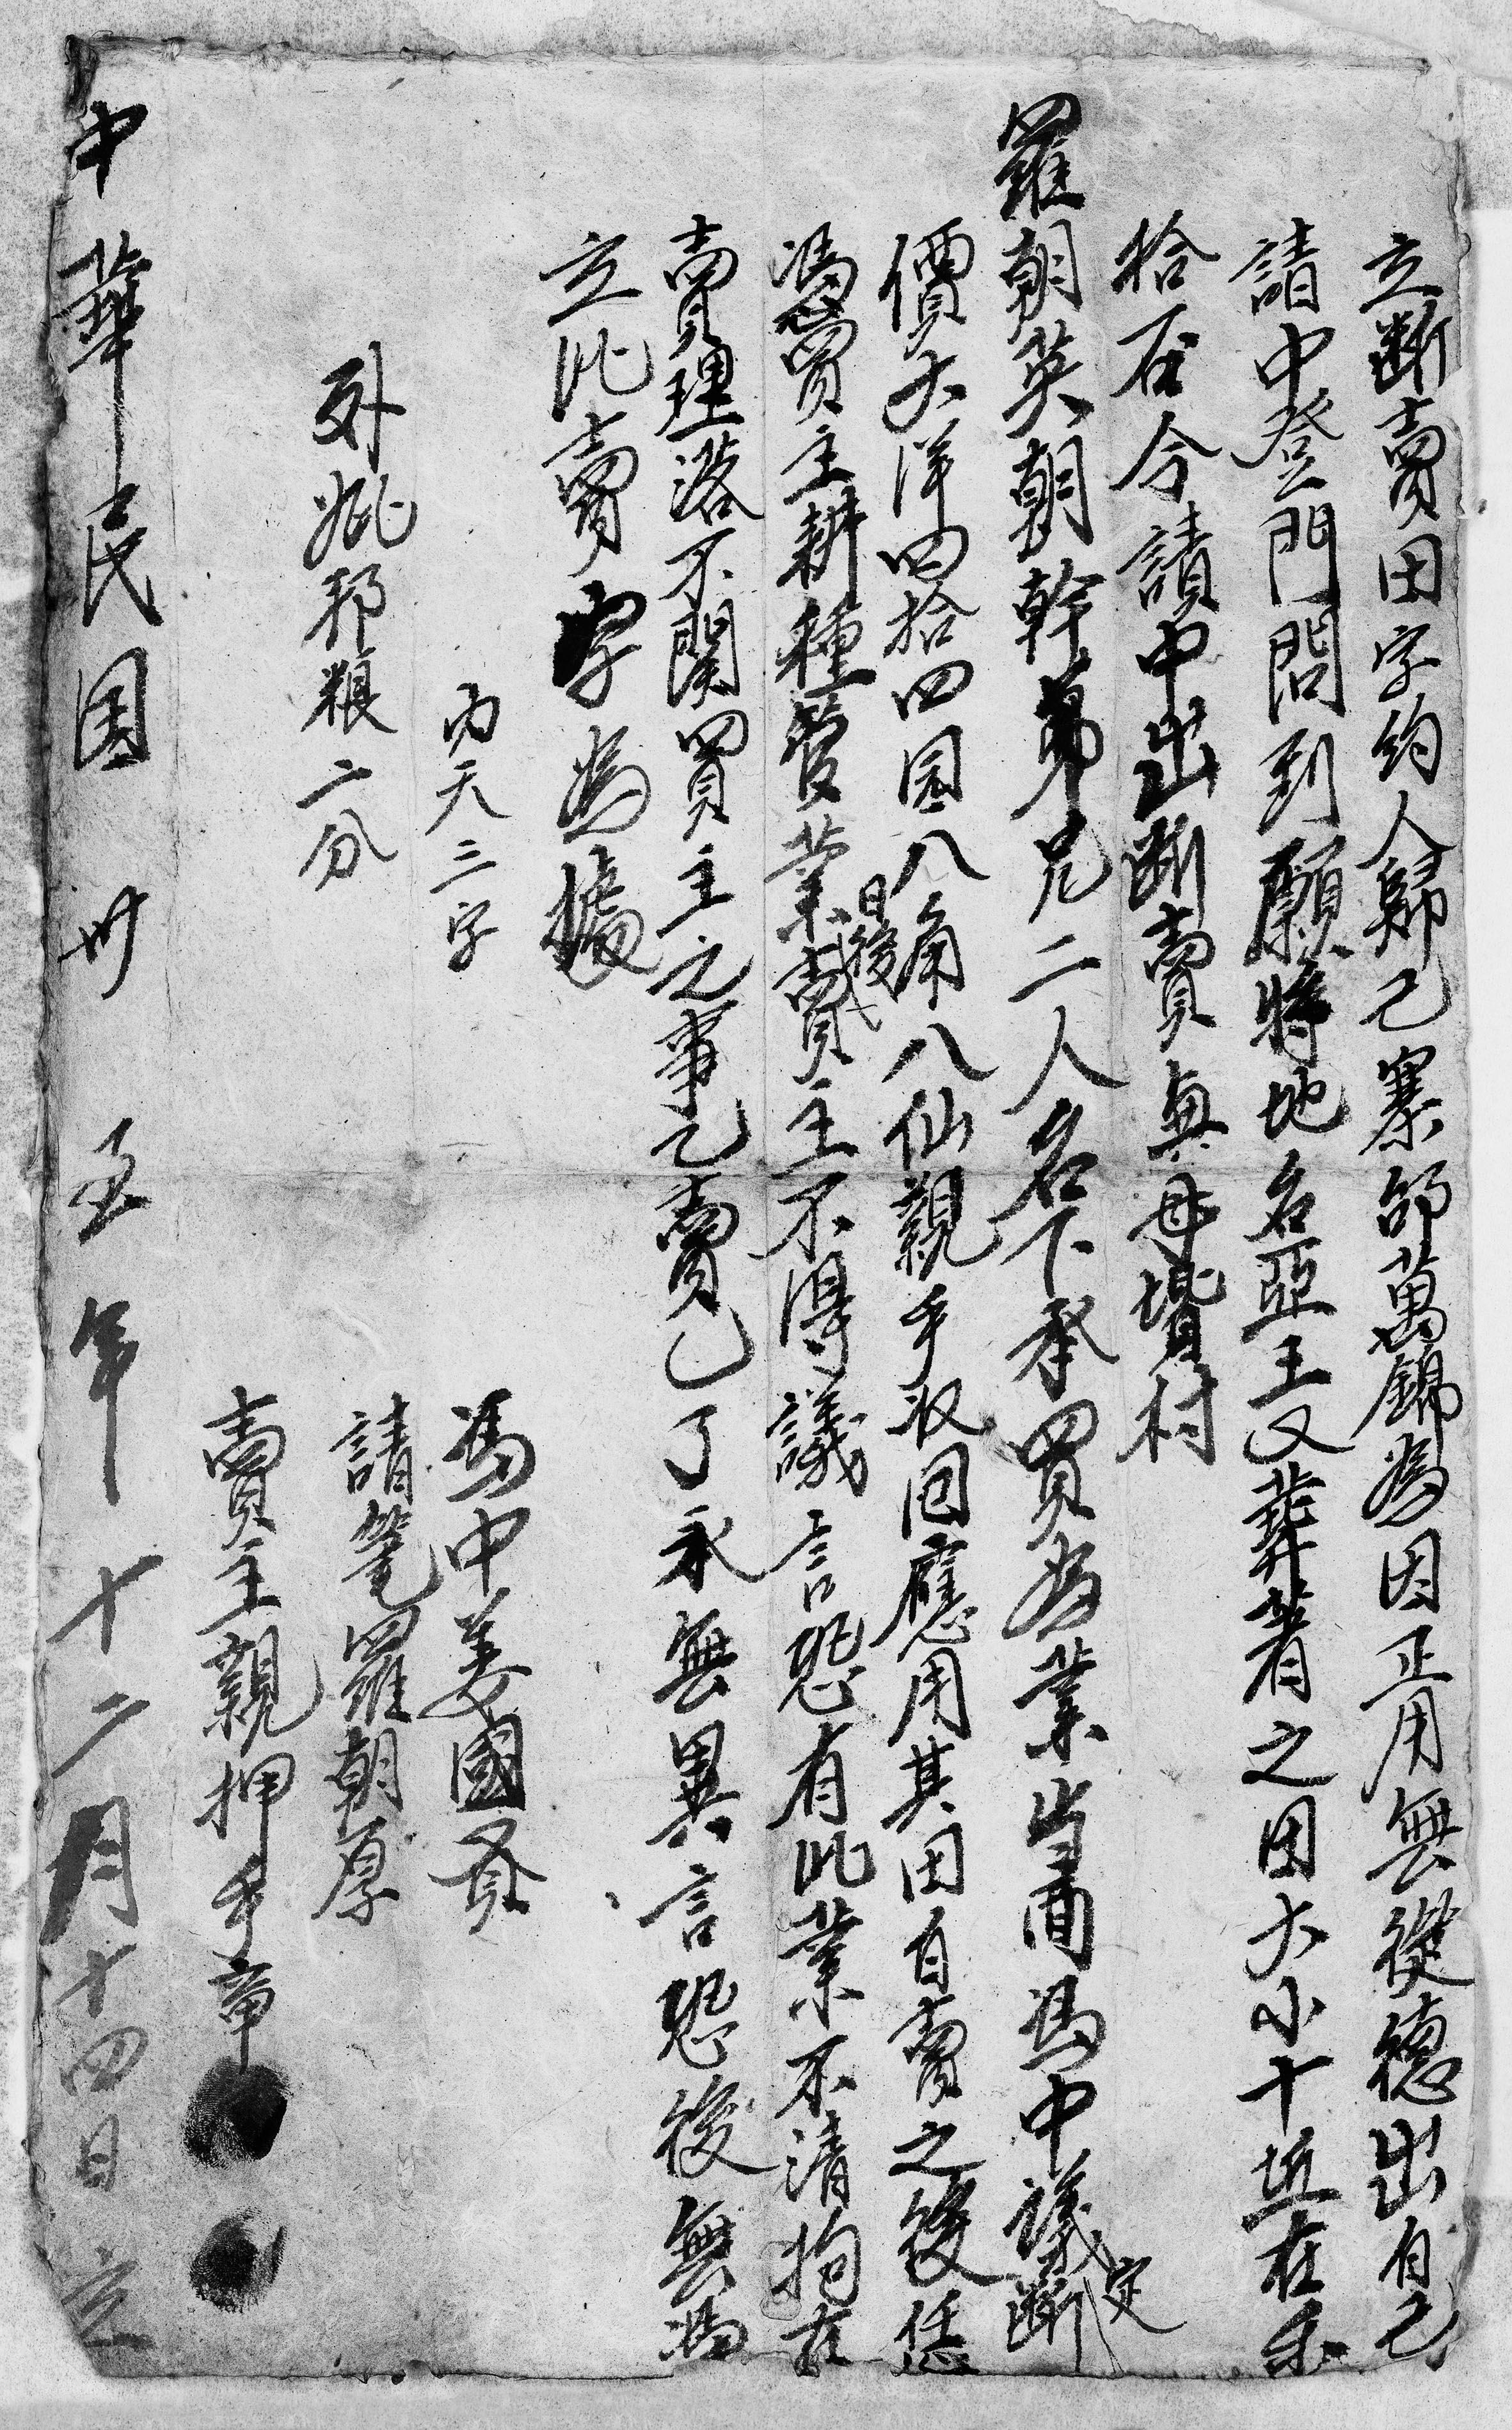 立斷賣田字約人歸己寨邰萬錦為因正用無從德出自己
請中登門問到願將地名亞王又葬着之田大小十坵在禾
拾石今請中出斷賣與母塘村
羅朝英朝幹弟兄二人名下承買為業当面馮中議定斷
價大洋四拾四园八角八仙親手收囘應用其田自賣之後恁
馮買主耕種管業日後賣主不得議言恐有此業不清拘在
賣理落不関買主之事乙賣乙了永無異言恐後無馮
立此賣字為據
內天三字
外批邦粮二分
馮中姜國
請筆羅朝厚
賣主親押手章
中華民国卅五年十二月十四日立